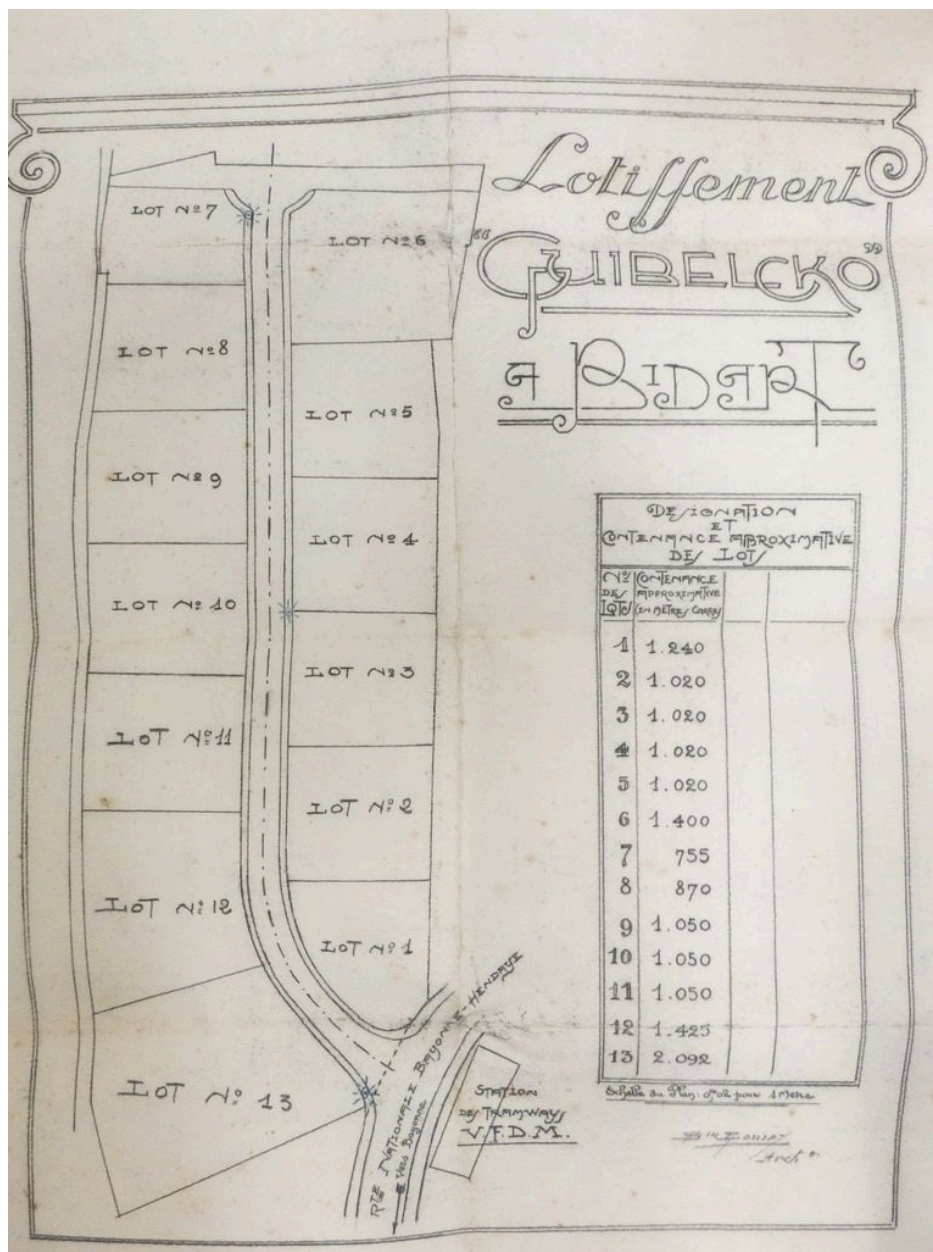 Lotissement
"GUIBELCKO"
A BIDART
LOT No 7
LOT No 6
LOT No 8
LOT No 5
LOT No 9
LOT No 4
LOT No 10
LOT No 3
LOT No 11
LOT No 2
LOT No 12
LOT No 1
LOT No 13
RTE NATIONALE BAYONNE-HENDAYE
Vers Bayonne
STATION
DES TRAMWAYS
V.F.D.M.
DESIGNATION
ET
CONTENANCE APPROXIMATIVE
DES LOTS
No DES LOTS CONTENANCE APPROXIMATIVE EN METRES CARRES
1 1.240
2 1.020
3 1.020
4 1.020
5 1.020
6 1.400
7 755
8 870
9 1.050
10 1.050
11 1.050
12 1.425
13 2.092
Echelle du Plan: 0,02 pour 1 Metre
Arch e.